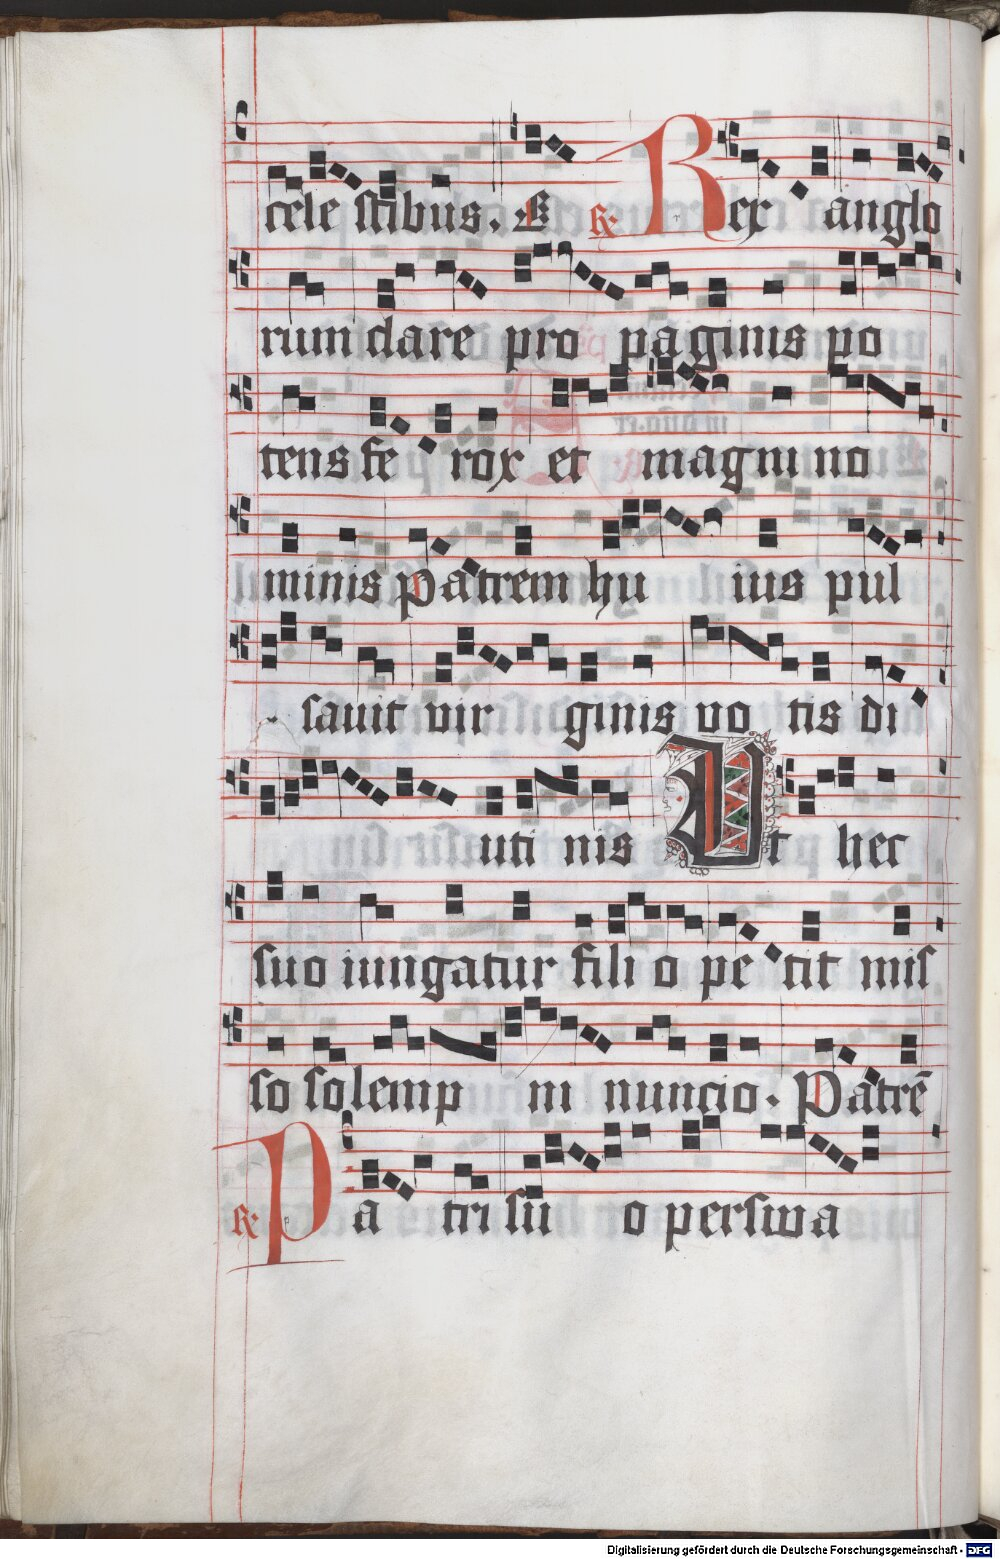 cele stibus. E ℟ Rex anglo
rum dare pro paginis po
tens fe rox et magni no
minis Patrem hu ius pul
sauit vir ginis vo tis di
uti nis Ut hec
suo iungatur fili o pe tit mis
so solemp ni nuncio. Patrē
℟ Pa tri su o perswa
Digitalisierung gefördert durch die Deutsche Forschungsgemeinschaft - DFG